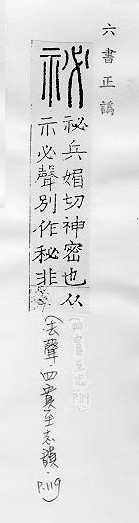 六書正譌
祕
祕兵媚切神密也从
示必聲別作秘非
(去聲·四寘至志韻·P.119)